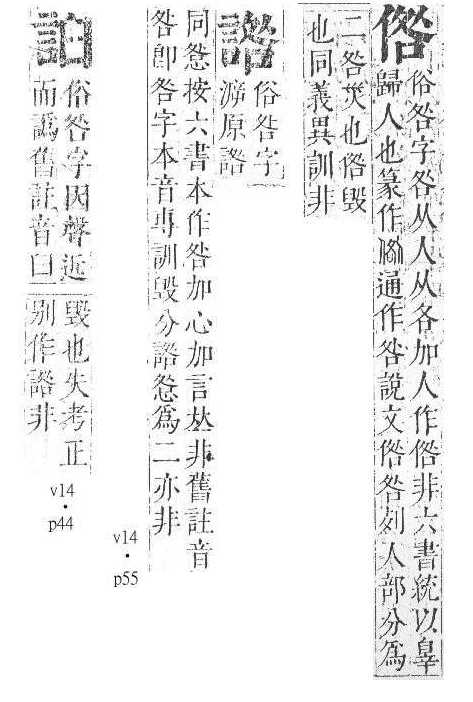 倃
俗咎字咎从人从各加人作倃非六書統以辠
歸人也篆作通作咎說文倃咎列人部分爲
二咎災也倃毀
也同義異訓非
俗咎字
泝原
同慦按六書本作咎加心加言𠀤非舊註音
咎卽咎字本音專訓毀分慦爲二亦非
v14・p55
俗咎字因聲近
而譌舊註音臼
毀也失考正
別作非
v14・p44